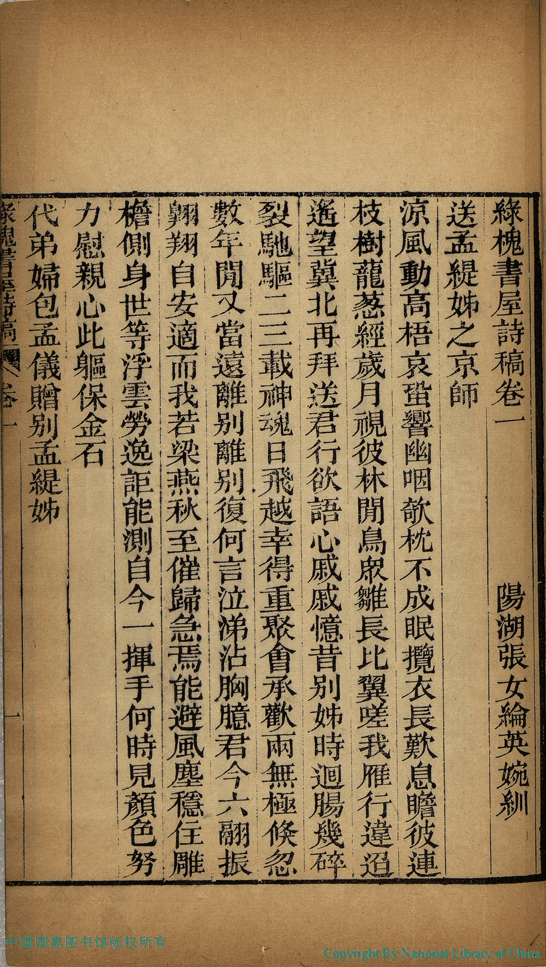 綠槐書屋詩稿卷一
陽湖張女綸英婉紃
送孟緹姊之京師
涼風動高梧哀蛩響幽咽欹枕不成眠攬衣長歎息瞻彼連
枝樹蘢蔥經歲月視彼林閒鳥眾雛長比翼嗟我雁行違迢
遙望冀北再拜送君行欲語心戚戚憶昔別姊時迴腸幾碎
裂馳驅二三載神魂日飛越幸得重聚會承歡兩無極倏忽
數年閒又當遠離別離別復何言泣涕沾胸臆君今六翮振
翱翔自安適而我若梁燕秋至催歸急焉能避風塵穩住雕
檐側身世等浮雲勞逸詎能測自今一揮手何時見顏色努
力慰親心此軀保金石
代弟婦包孟儀贈別孟緹姊
綠槐書屋詩稿 卷一
一
中国国家图书馆版权所有
Copyright By National Library of China